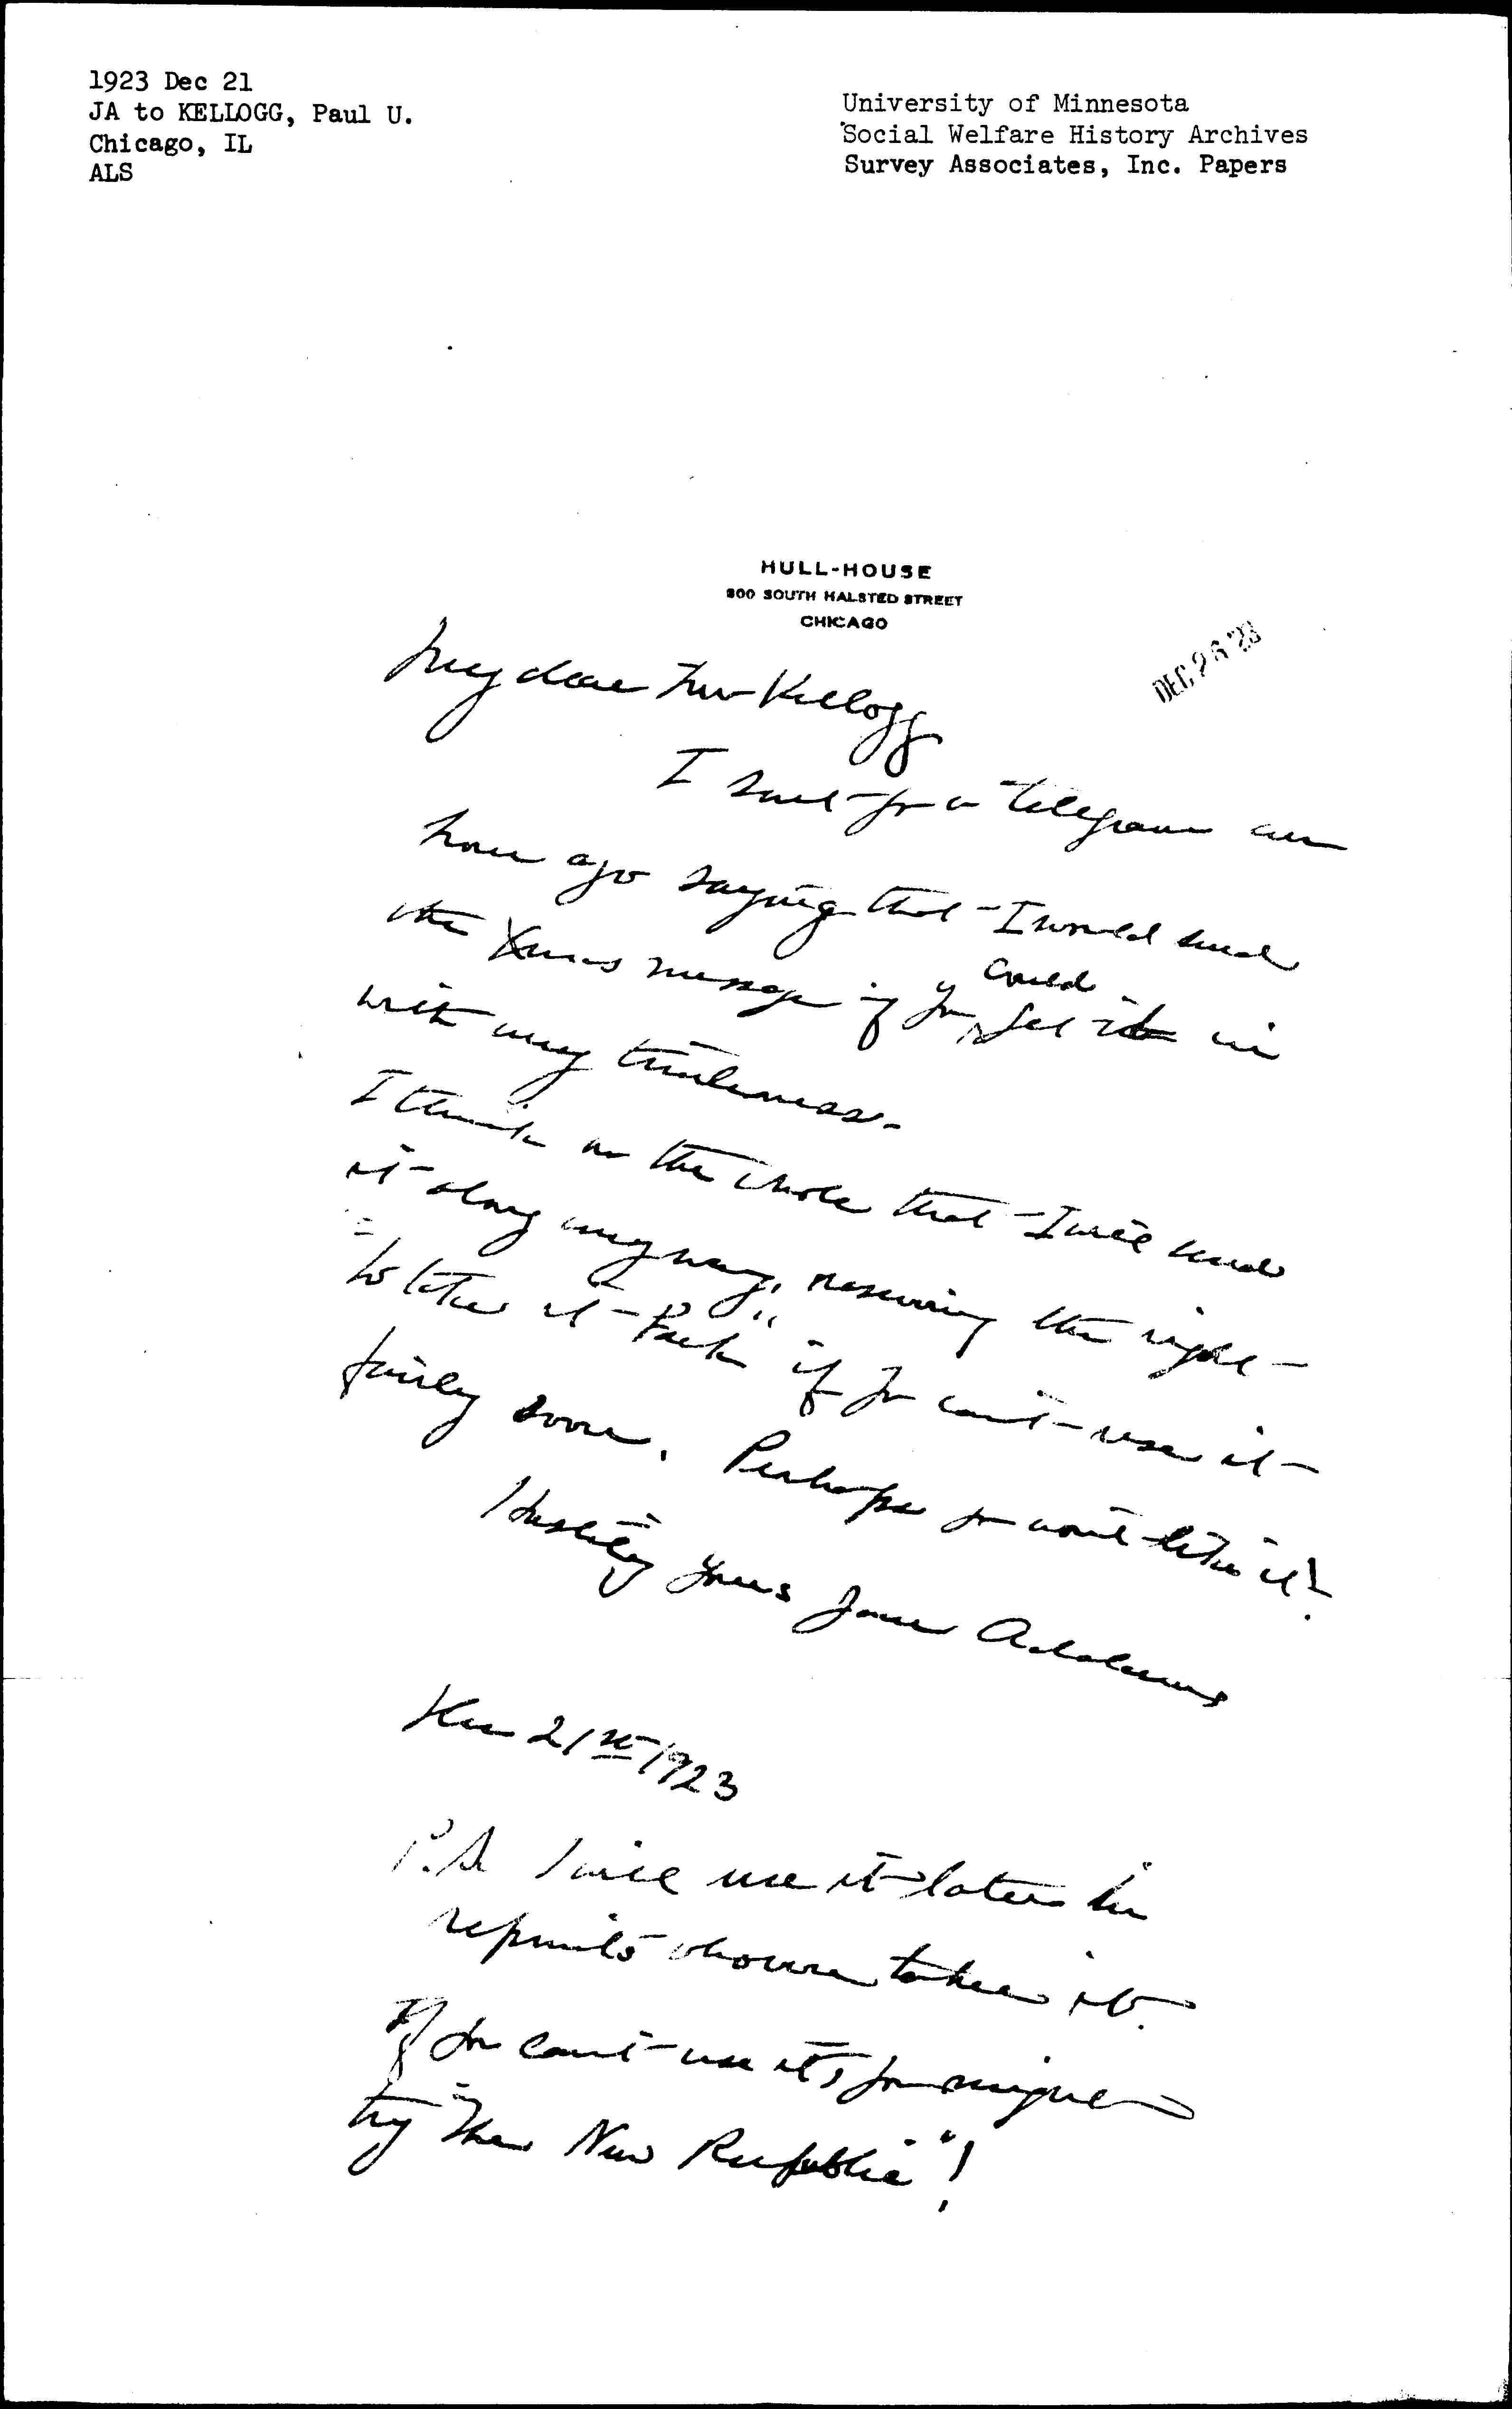 1923 Dec 21
JA to KELLOGG, Paul U.
Chicago, IL
ALS
University of Minnesota
Social Welfare History Archives
Survey Associates, Inc. Papers
HULL-HOUSE
800 SOUTH HALSTED STREET
CHICAGO
DEC 26 '23
My dear Mr Kellogg
I sent you a telegram an
hour ago saying that I would send
the Xmas message if you could get it in
with any timeliness.
I think on the whole that I will send
it along anyway, reserving the right
to take it "back" if you can't use it
fairly soon. Perhaps you won't like it!
Hastily yours Jane Addams
Dec 21st 1923
P.S I will use it later in
reprints whoever takes it.
If you can't use it, you might
try "The New Republic"!